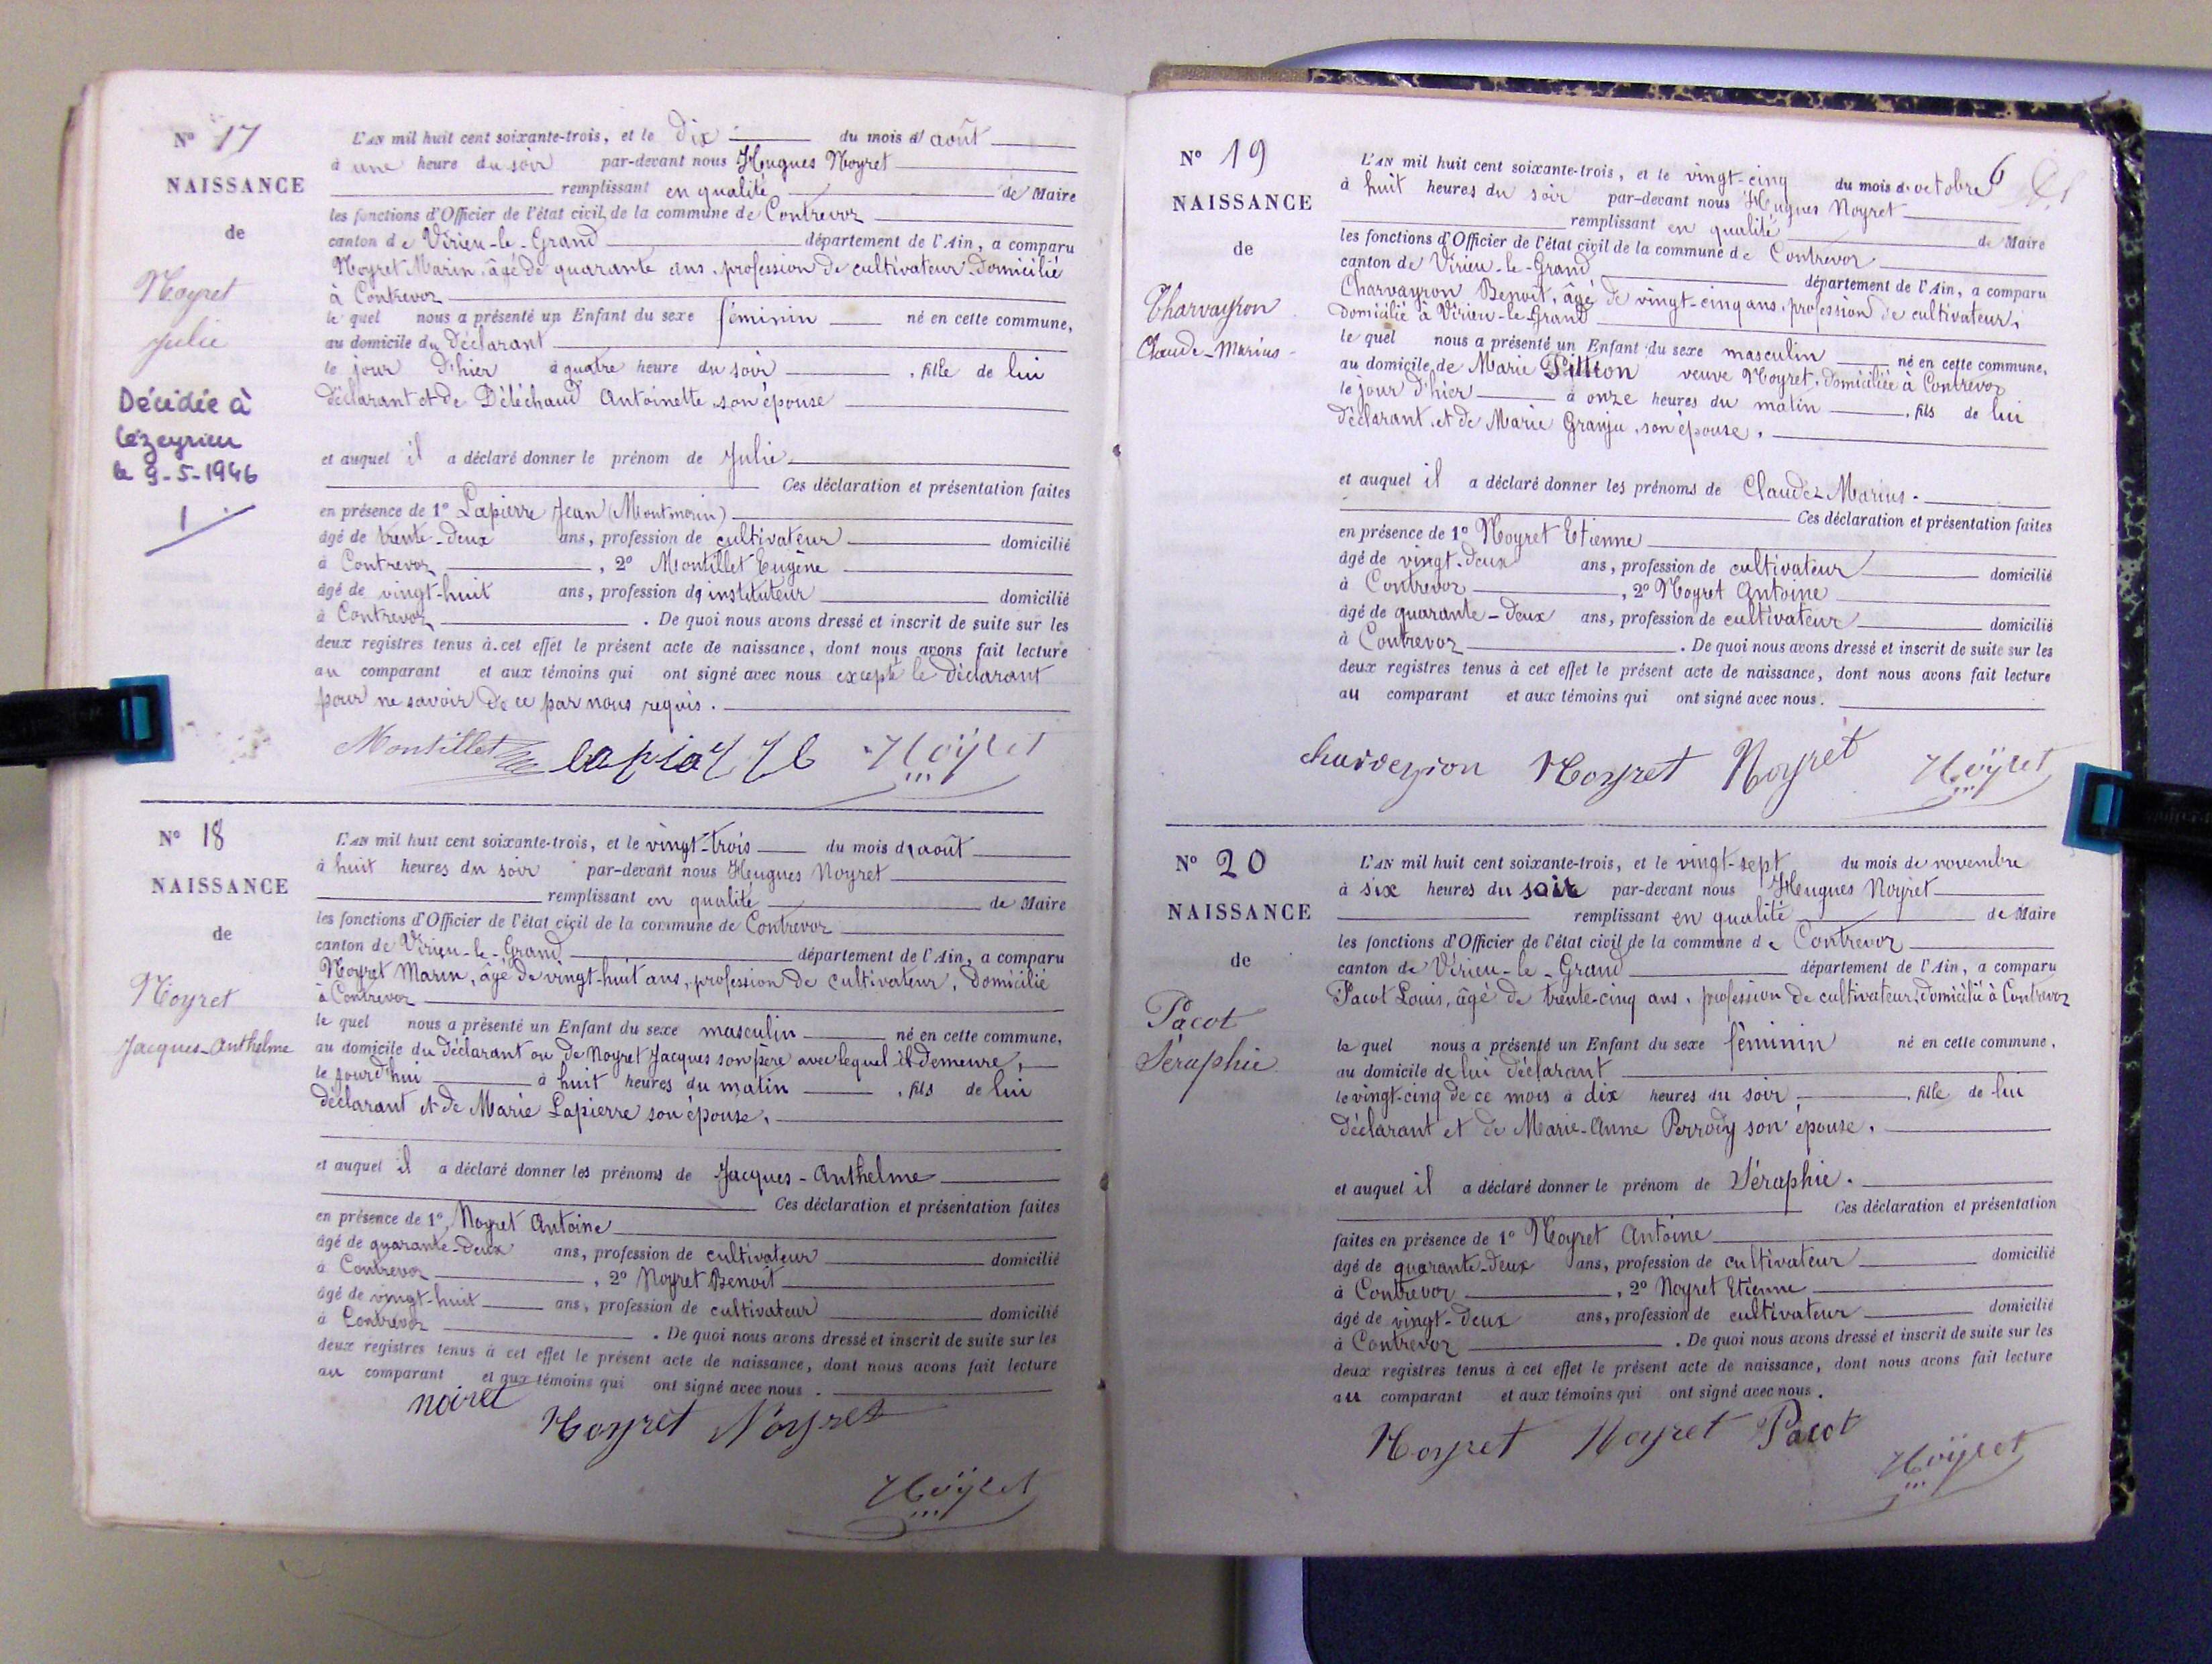 N° 17
NAISSANCE
de
Noyret
Julie
Décédée à
Cézeyrieu
le 9-5-1946
L'AN mil huit cent soixante-trois, et le dix du mois d'août
à une heure du soir par-devant nous Hugues Noyret
remplissant en qualité de Maire
les fonctions d'Officier de l'état civil de la commune de Contrevoz
canton de Virieu-le-Grand département de l'Ain, a comparu
Noyret Marin, âgé de quarante ans, profession de cultivateur, domicilié
à Contrevoz
le quel nous a présenté un Enfant du sexe féminin né en cette commune,
au domicile du déclarant
le jour d'hier à quatre heure du soir, fille de lui
déclarant et de Déléchaud Antoinette son épouse
et auquel il a déclaré donner le prénom de Julie
Ces déclaration et présentation faites
en présence de 1° Lapierre Jean (Montmorin)
âgé de trente-deux ans, profession de cultivateur domicilié
à Contrevoz, 2° Montillet Eugène
âgé de vingt-huit ans, profession d'instituteur domicilié
à Contrevoz. De quoi nous avons dressé et inscrit de suite sur les
deux registres tenus à cet effet le présent acte de naissance, dont nous avons fait lecture
au comparant et aux témoins qui ont signé avec nous excepté le déclarant
pour ne savoir de ce par nous requis.
Montillet Noÿret
N° 18
NAISSANCE
de
Noyret
Jacques-Anthelme
L'AN mil huit cent soixante-trois, et le vingt-trois du mois d'août
à huit heures du soir par-devant nous Hugues Noyret
remplissant en qualité de Maire
les fonctions d'Officier de l'état civil de la commune de Contrevoz
canton de Virieu-le-Grand département de l'Ain, a comparu
Noyret Marin, âgé de vingt-huit ans, profession de cultivateur, domicilié
à Contrevoz
le quel nous a présenté un Enfant du sexe masculin né en cette commune,
au domicile du déclarant ou de Noyret Jacques son père avec lequel il demeure,
le jourd'hui à huit heures du matin, fils de lui
déclarant et de Marie Lapierre son épouse.
et auquel il a déclaré donner les prénoms de Jacques-Anthelme
Ces déclaration et présentation faites
en présence de 1° Noyret Antoine
âgé de quarante-deux ans, profession de cultivateur domicilié
à Contrevoz, 2° Noyret Benoît
âgé de vingt-huit ans, profession de cultivateur domicilié
à Contrevoz. De quoi nous avons dressé et inscrit de suite sur les
deux registres tenus à cet effet le présent acte de naissance, dont nous avons fait lecture
au comparant et aux témoins qui ont signé avec nous.
noiret Noyret Noyret
Noÿret
N° 19
NAISSANCE
de
Charvayron
Claude-Marius
6
L'AN mil huit cent soixante-trois, et le vingt-cinq du mois d'octobre
à huit heures du soir par-devant nous Hugues Noyret
remplissant en qualité de Maire
les fonctions d'Officier de l'état civil de la commune de Contrevoz
canton de Virieu-le-Grand département de l'Ain, a comparu
Charvayron Benoît, âgé de vingt-cinq ans, profession de cultivateur,
domicilié à Virieu-le-Grand
le quel nous a présenté un Enfant du sexe masculin né en cette commune,
au domicile de Marie Pittion veuve Noyret, domiciliée à Contrevoz
le jour d'hier à onze heures du matin, fils de lui
déclarant, et de Marie Granju, son épouse.
et auquel il a déclaré donner les prénoms de Claude-Marius.
Ces déclaration et présentation faites
en présence de 1° Noyret Etienne
âgé de vingt-deux ans, profession de cultivateur domicilié
à Contrevoz, 2° Noyret Antoine
âgé de quarante-deux ans, profession de cultivateur domicilié
à Contrevoz. De quoi nous avons dressé et inscrit de suite sur les
deux registres tenus à cet effet le présent acte de naissance, dont nous avons fait lecture
au comparant et aux témoins qui ont signé avec nous.
charveyron Noyret Noyret Noÿret
N° 20
NAISSANCE
de
Pacot
Séraphie
L'AN mil huit cent soixante-trois, et le vingt-sept du mois de novembre
à six heures du soir par-devant nous Hugues Noyret
remplissant en qualité de Maire
les fonctions d'Officier de l'état civil de la commune de Contrevoz
canton de Virieu-le-Grand département de l'Ain, a comparu
Pacot Louis, âgé de trente-cinq ans, profession de cultivateur, domicilié à Contrevoz
le quel nous a présenté un Enfant du sexe féminin né en cette commune,
au domicile de lui déclarant
le vingt-cinq de ce mois à dix heures du soir, fille de lui
déclarant et de Marie-Anne Perrody son épouse.
et auquel il a déclaré donner le prénom de Séraphie.
Ces déclaration et présentation
faites en présence de 1° Noyret Antoine
âgé de quarante-deux ans, profession de cultivateur domicilié
à Contrevoz, 2° Noyret Etienne
âgé de vingt-deux ans, profession de cultivateur domicilié
à Contrevoz. De quoi nous avons dressé et inscrit de suite sur les
deux registres tenus à cet effet le présent acte de naissance, dont nous avons fait lecture
au comparant et aux témoins qui ont signé avec nous.
Noyret Noyret Pacot
Noÿret